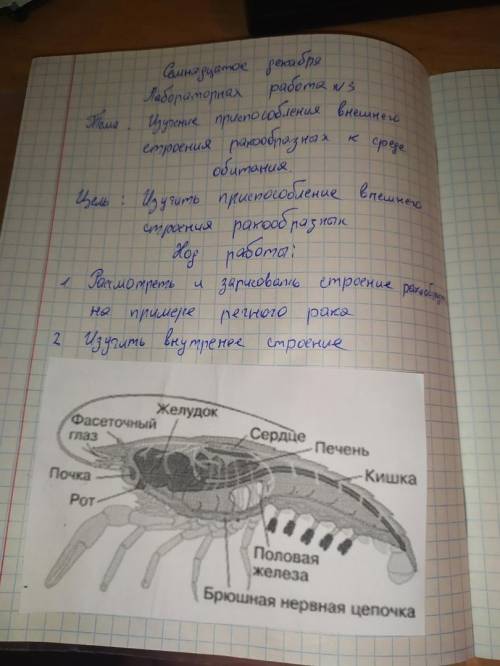 Семнадцатое декабря
Лабораторная работа №3
Тема: Изучение приспособления внешнего
строения ракообразных к среде
обитания.
Цель: Изучить приспособление внешнего
строения ракообразных
Ход работы:
1 Расмотреть и зарисовать строение ракообразн
на примере речного рака
2 Изучить внутренее строение
Желудок
Фасеточный
глаз
Сердце
Печень
Почка
Кишка
Рот
Половая
железа
Брюшная нервная цепочка